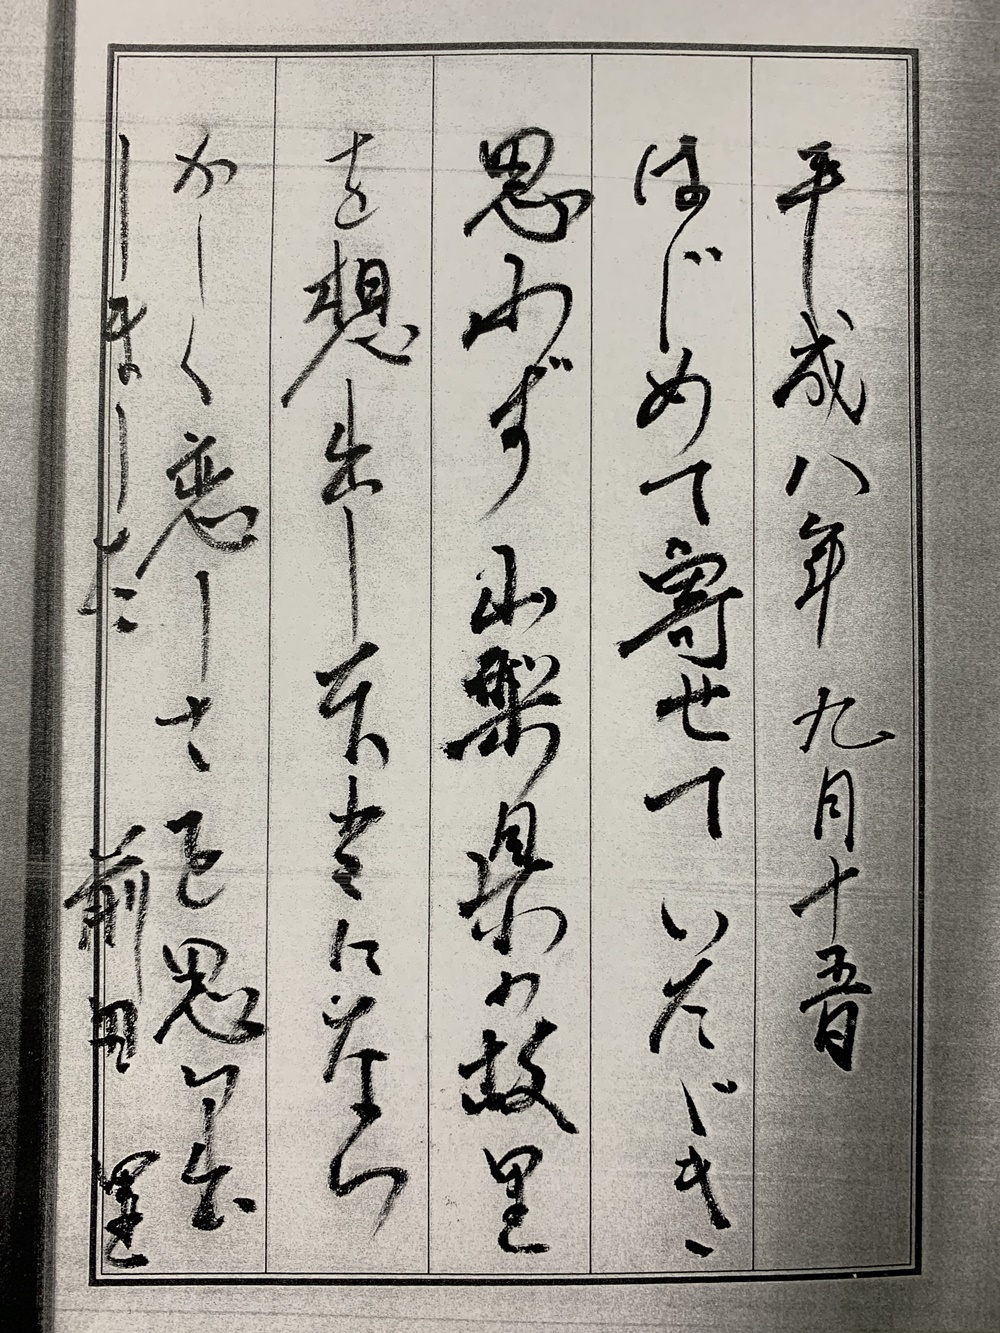 平成八年 九月十五日
はじめて寄せていただき、
思わず山梨県の故里
を想出し本当になつ
かしく恋しさを思い出
しました 前田